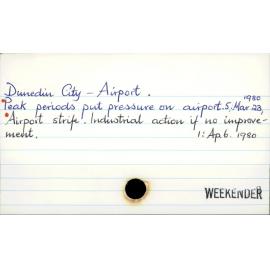 Dunedin City - Airport.
Peak periods put pressure on airport. 5, Mar 23, 1980
Airport strife. Industrial action if no improve-
ment. 1: Ap 6. 1980
WEEKENDER